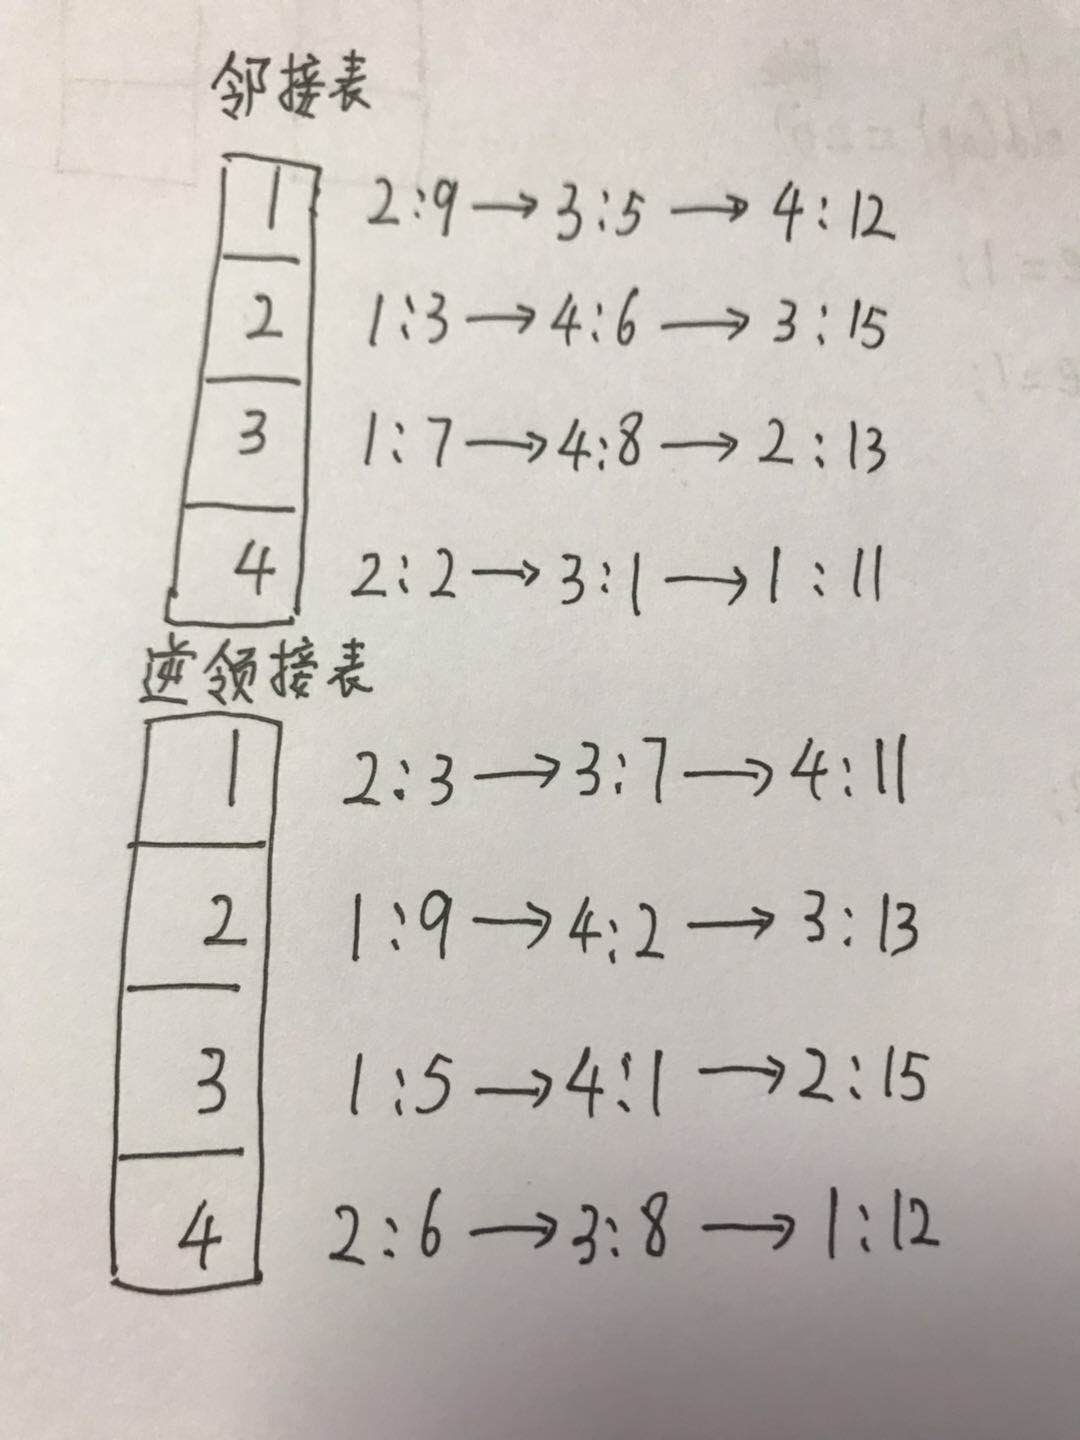 邻接表
1 2:9→3:5→4:12
2 1:3→4:6→3:15
3 1:7→4:8→2:13
4 2:2→3:1→1:11
逆领接表
1 2:3→3:7→4:11
2 1:9→4:2→3:13
3 1:5→4:1→2:15
4 2:6→3:8→1:12